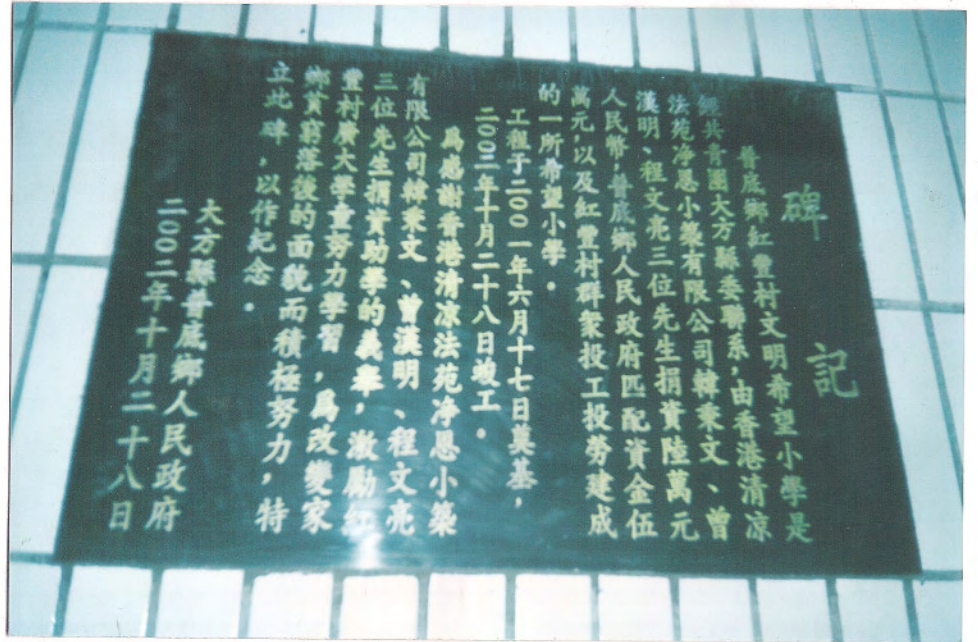 碑記
普底鄉紅豐村文明希望小學是
經共青團大方縣委聯系，由香港清凉
法苑净恩小築有限公司韓秉文、曾
漢明、程文亮三位先生捐資陸萬元
人民幣，普底鄉人民政府匹配資金伍
萬元以及紅豐村群衆投工投勞建成
的一所希望小學．
工程于二00一年六月十七日奠基，
二00二年十月二十八日竣工．
爲感謝香港清凉法苑净恩小築
有限公司韓秉文、曾漢明、程文亮
三位先生捐資助學的義舉，激勵紅
豐村廣大學童努力學習，爲改變家
鄉貧窮落後的面貌而積極努力，特
立此碑，以作紀念．
大方縣普底鄉人民政府
二00二年十月二十八日